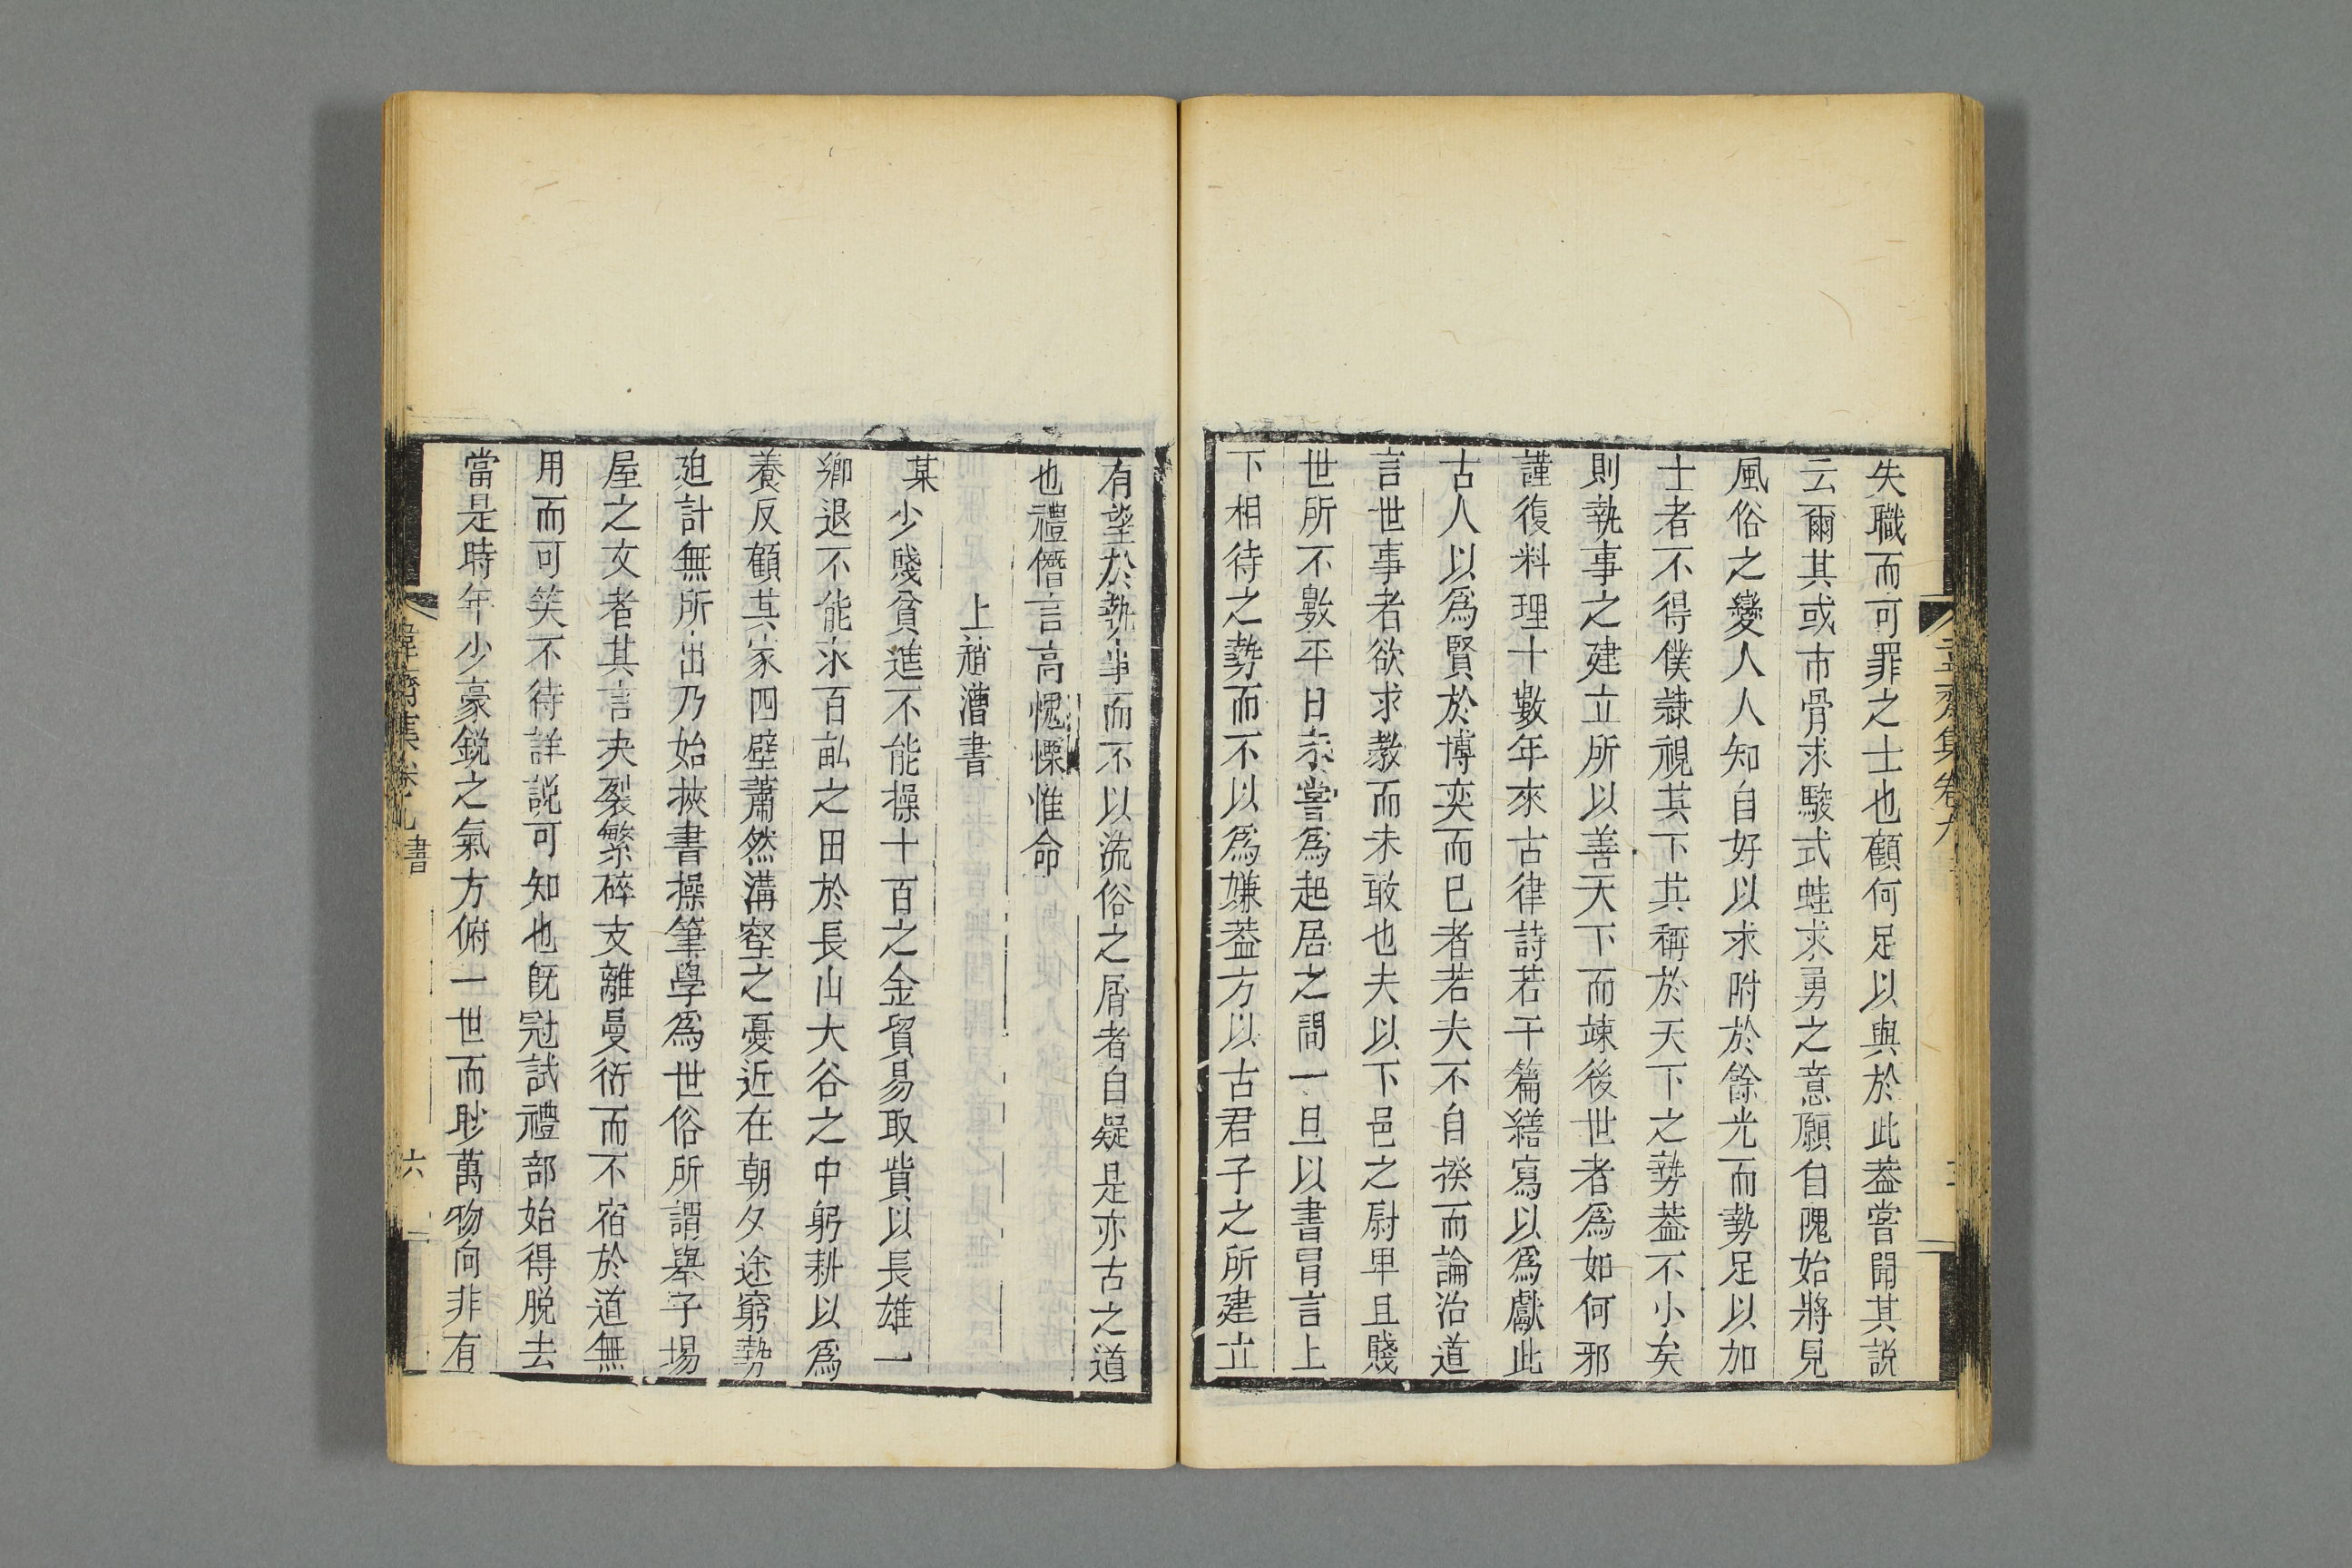 失職而可罪之士也顧何足以與於此葢嘗聞其説
云爾其或市骨求駿式蛙求勇之意願自隗始將見
風俗之變人人知自好以求附於餘光而勢足以加
士者不得僕隷視其下其稱於天下之勢葢不小矣
則執事之建立所以善天下而竦後世者爲如何邪
謹復料理十數年來古律詩若干篇繕寫以爲獻此
古人以爲賢於博奕而已者若夫不自揆而論治道
言世事者欲求教而未敢也夫以下邑之尉卑且賤
世所不數平日未嘗爲起居之問一旦以書冒言上
下相待之勢而不以爲嫌葢方以古君子之所建立
有望於執事而不以流俗之屑者自疑是亦古之道
也禮僭言高愧慄惟命
上趙漕書
某少賤貧進不能操十百之金貿易取貲以長雄一
鄉退不能求百畝之田於長山大谷之中躬耕以爲
養反顧其家四壁蕭然溝壑之憂近在朝夕途窮勢
迫計無所出乃始挾書操筆學爲世俗所謂舉子場
屋之文者其言夬裂繁碎支離曼衍而不宿於道無
用而可笑不待詳説可知也旣冠試禮部始得脱去
當是時年少豪鋭之氣方俯一世而眇萬物向非有
韋齋集卷九 書
六